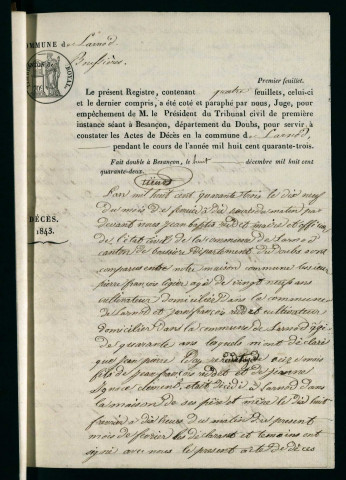 COMMUNE de Larnod
Bussières
Premier feuillet.
Le présent Registre, contenant quatre feuillets, celui-ci
et le dernier compris, a été coté et paraphé par nous, Juge, pour
empêchement de M. le Président du Tribunal civil de première
instance séant à Besançon, département du Doubs, pour servir à
constater les Actes de Décès en la commune de Larnod,
pendant le cours de l'année mil huit cent quarante-trois.
Fait double à Besançon, le huit décembre mil huit cent
quarante-deux.
DÉCÈS,
1843.
L'an mil huit cent quarante trois le dix neuf
du mois de février à dix heures du matin par
devant nous Jean baptiste maire et officier
de l'état civil de la commune de Larnod
canton de Département du doubs sont
comparus en notre maison commune
pierre françois âgé de vingt neuf ans
cultivateur domicilié dans la commune
de Larnod et jean françois cultivateur
domicilié dans la commune de Larnod âgé
de quarante ans lesquels nous ont déclaré
que jean pierre âgé de onze mois
fils de jean françois et de jeanne
clement, était décédé à Larnod dans
la maison de ses père et mère le dix huit
février à dix heures du matin du présent
mois de février les déclarants et temoins ont
signé avec nous le present acte de décès